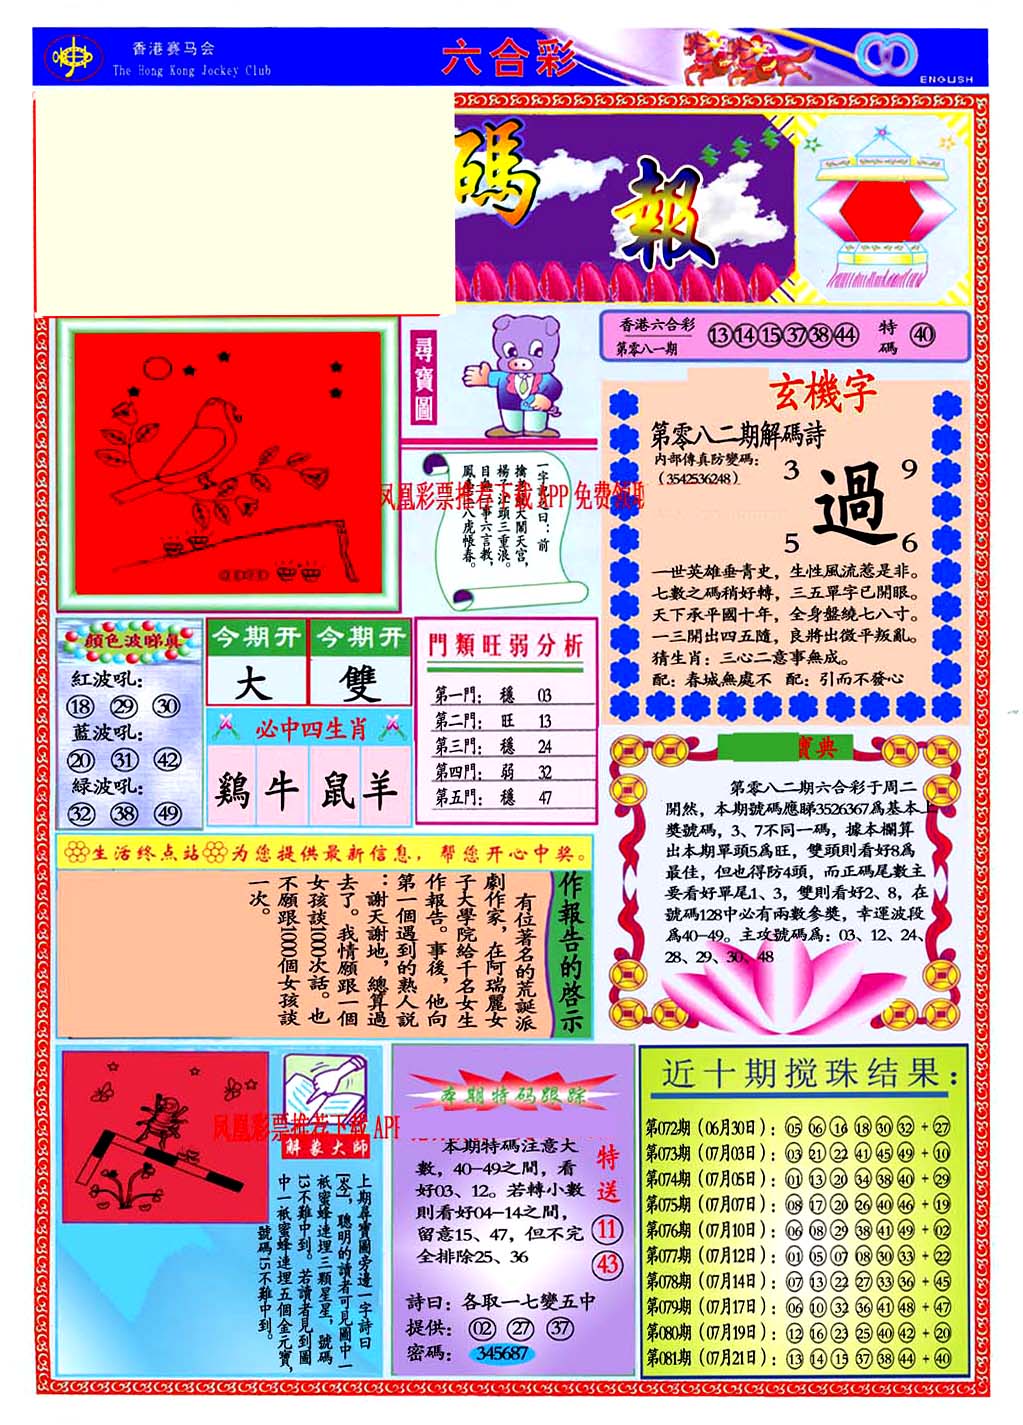 香港赛马会
The Hong Kong Jockey Club
六合彩
ENGLISH
碼報
尋寶圖
香港六合彩
第零八一期
13 14 15 37 38 44
特碼
40
玄機字
第零八二期解碼詩
内部傳真防變碼:
(3542536248)
3 9
過
5 6
一世英雄垂青史，生性風流惹是非。
七數之碼稍好轉，三五單字已開眼。
天下承平國十年，全身盤繞七八寸。
一三開出四五隨，良將出徵平叛亂。
猜生肖：三心二意事無成。
配：春城無處不 配：引而不發心
凤凰彩票推荐下载 APP 免费领取
一字
曰：前
大鬧天宮，
楊子江頭三重浪。
目
事六言教，
鳳
八虎帳春。
顔色波睇真
紅波吼：
18 29 30
藍波吼：
20 31 42
緑波吼：
32 38 49
今期开
大
今期开
雙
必中四生肖
鷄 牛 鼠 羊
門類旺弱分析
第一門： 穩 03
第二門： 旺 13
第三門： 穩 24
第四門： 弱 32
第五門： 穩 47
寶典
第零八二期六合彩于周二
開然，本期號碼應睇3526367爲基本上
獎號碼，3、7不同一碼，據本欄算
出本期單頭5爲旺，雙頭則看好8爲
最佳，但也得防4頭，而正碼尾數主
要看好單尾1、3，雙則看好2、8，在
號碼128中必有兩數參獎，幸運波段
爲40-49。主攻號碼爲：03、12、24、
28、29、30、48
生活终点站 为您提供最新信息，帮您开心中奖。
作報告的啓示
有位著名的荒誕派
劇作家，在阿瑞麗女
子大學院給千名女生
作報告。事後，他向
第一個遇到的熟人說
：謝天謝地，總算過
去了。我情願跟一個
女孩談1000次話。也
不願跟1000個女孩談
一次。
凤凰彩票推荐下载 APP
解象大師
上期尋寶圖旁邊一字詩曰
[岑]，聰明的讀者可見圖中一
祇蜜蜂連埋三顆星星，號碼
13不難中到。若讀者見到圖
中一祇蜜蜂連埋五個金元寶，
號碼15不難中到。
本期特码跟踪
本期特碼注意大
數，40-49之間，看
好03、12。若轉小數
則看好04-14之間，
留意15、47，但不完
全排除25、36
特送
11
43
詩曰：各取一七變五中
提供： 02 27 37
密碼： 345687
近十期搅珠结果：
第072期（06月30日）：05 06 16 18 30 32 + 27
第073期（07月03日）：03 21 22 41 45 49 + 10
第074期（07月05日）：01 13 20 34 38 40 + 29
第075期（07月07日）：08 17 20 26 40 46 + 19
第076期（07月10日）：06 08 29 38 41 49 + 02
第077期（07月12日）：01 05 07 08 30 33 + 22
第078期（07月14日）：07 13 22 27 33 36 + 45
第079期（07月17日）：06 10 32 36 41 48 + 47
第080期（07月19日）：12 16 23 25 40 42 + 20
第081期（07月21日）：13 14 15 37 38 44 + 40